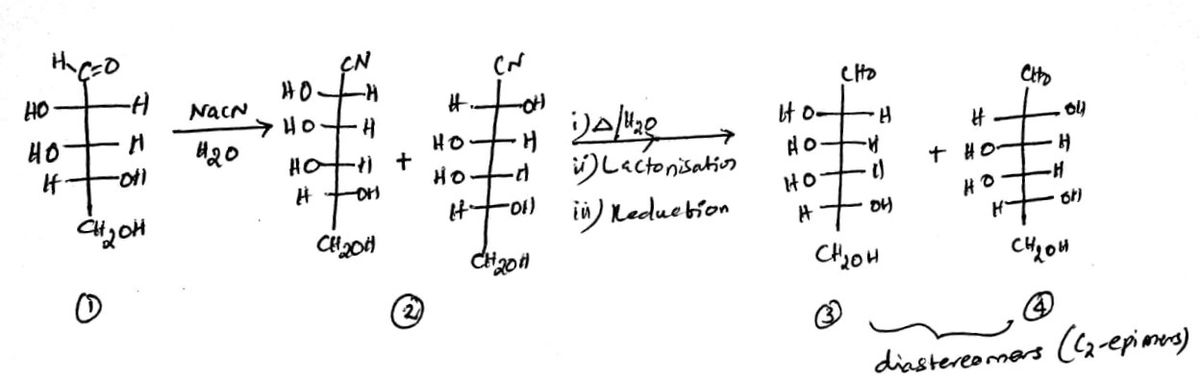 H C=O
HO H
HO H
H OH
CH2OH
①
NaCN
H2O
CN
HO H
HO H
HO H
H OH
CH2OH
+
CN
H OH
HO H
HO H
H OH
CH2OH
②
i) Δ/H2O
ii) Lactonisation
iii) Reduction
CHO
HO H
HO H
HO H
H OH
CH2OH
③
+
CHO
H OH
HO H
HO H
H OH
CH2OH
④
diastereomers (C2-epimers)